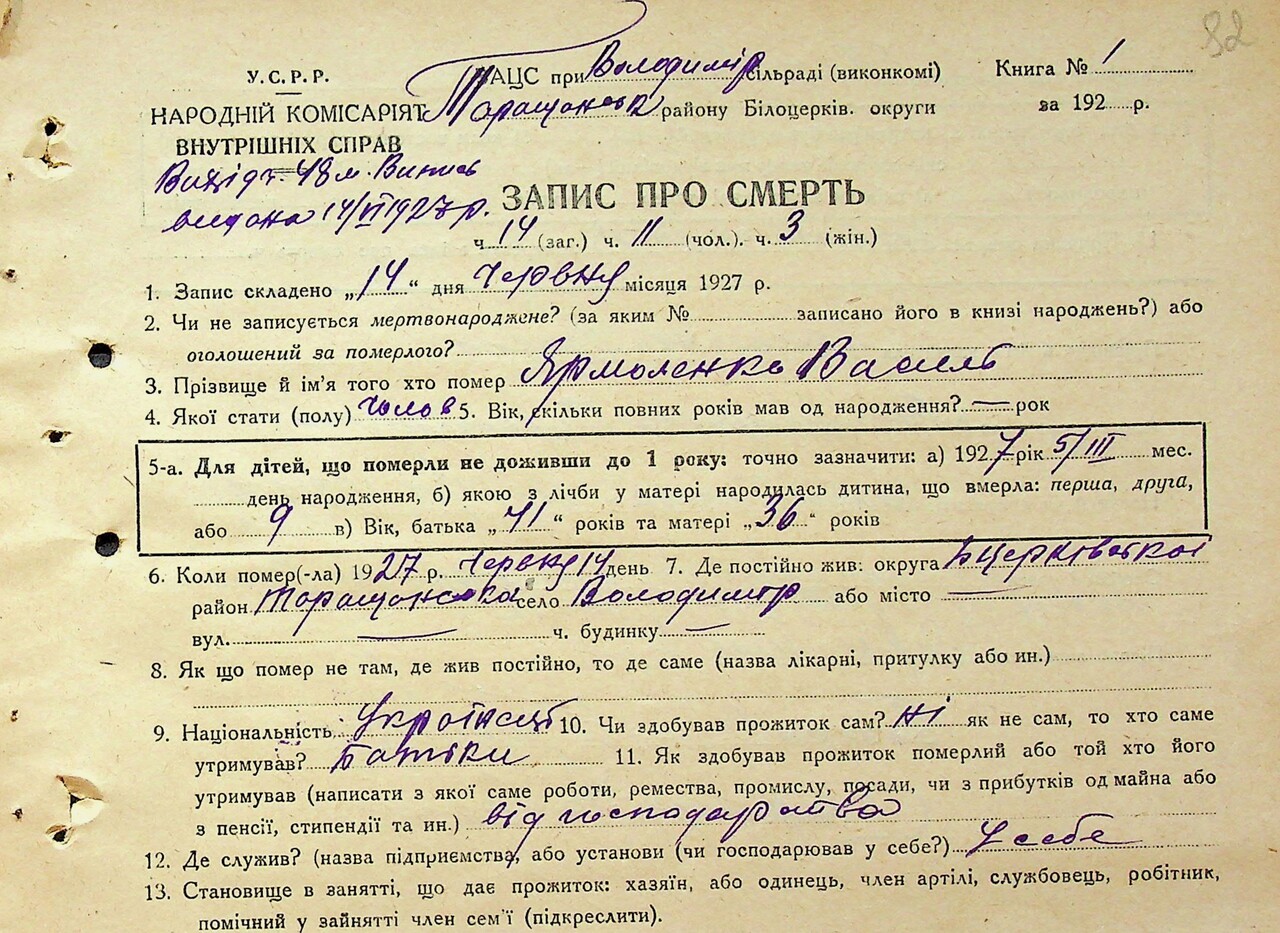 82
У.С.Р.Р.
НАРОДНІЙ КОМІСАРІЯТ
ВНУТРІШНІХ СПРАВ
ЗАЦС при Володимір сільраді (виконкомі)
Таращанськ району Білоцерків. округи
Книга № 1
за 192 р.
48 м. Випись
видана 14/VI 1927 р.
ЗАПИС ПРО СМЕРТЬ
ч. 14 (заг.) ч. 11 (чол.). ч. 3 (жін.)
1. Запис складено „14“ дня червня місяця 1927 р.
2. Чи не записується мертвонароджене? (за яким № записано його в книзі народжень?) або
оголошений за померлого?
3. Прізвище й ім'я того хто помер Ярмоленко Василь
4. Якої стати (полу) чолов 5. Вік, скільки повних років мав од народження? — рок
5-а. Для дітей, що померли не доживши до 1 року: точно зазначити: а) 1927 рік 5/III мес.
день народження, б) якою з лічби у матері народилась дитина, що вмерла: перша, друга,
або 9 в) Вік, батька „41“ років та матері „36“ років
6. Коли помер(-ла) 1927 р. червня 14 день 7. Де постійно жив: округа Бцерківської
район Таращанська село Володимір або місто —
вул. — ч. будинку —
8. Як що помер не там, де жив постійно, то де саме (назва лікарні, притулку або ин.)
9. Національність Українець 10. Чи здобував прожиток сам? ні як не сам, то хто саме
утримував? батьки 11. Як здобував прожиток померлий або той хто його
утримував (написати з якої саме роботи, ремества, промислу, посади, чи з прибутків од майна або
з пенсії, стипендії та ин.) від господарства
12. Де служив? (назва підприємства, або установи (чи господарював у себе?) У себе
13. Становище в занятті, що дає прожиток: хазяїн, або одинець, член артілі, службовець, робітник,
помічний у зайнятті член сем'ї (підкреслити).